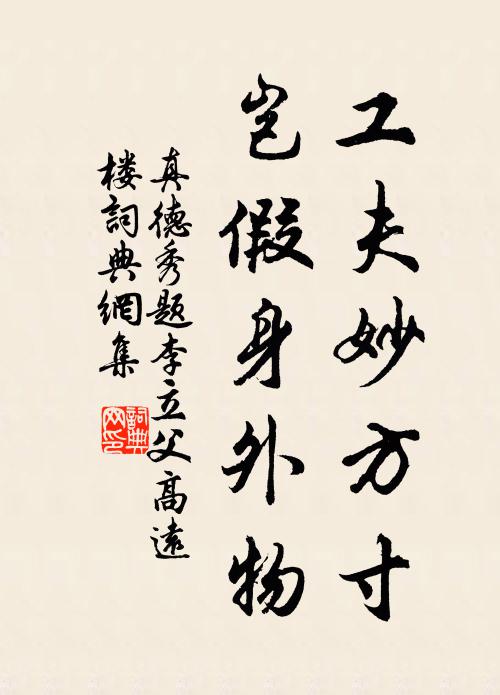 工夫妙方寸
岂假身外物
真德秀题李立父高遠
楼詞典網集
詞典網印